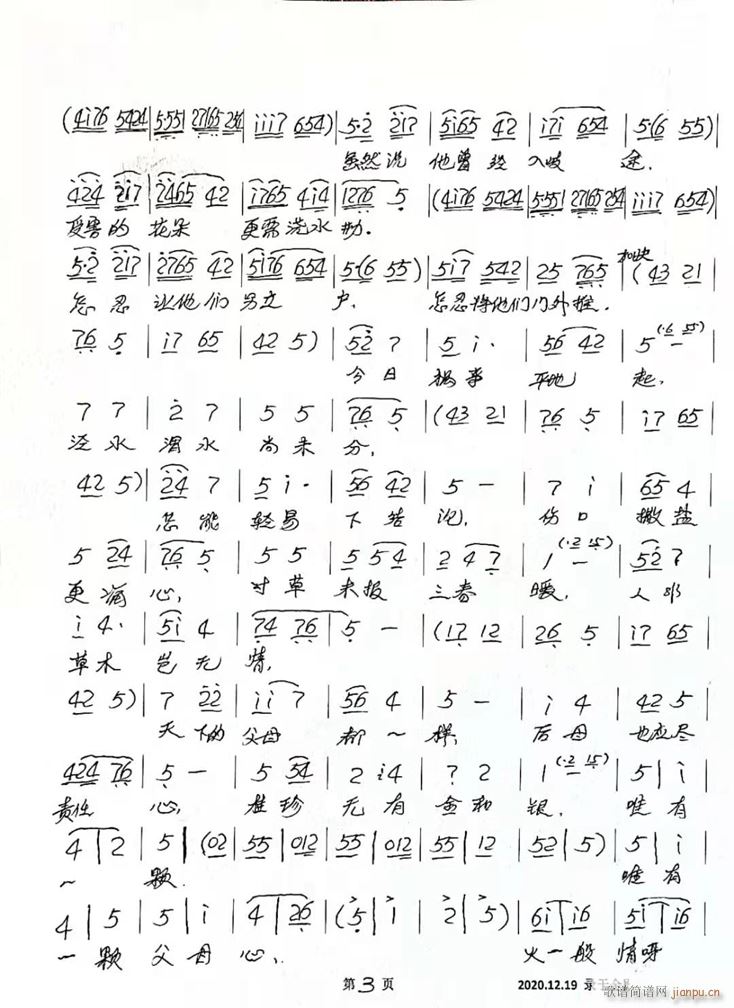 (4i76 5424 | 5·551 2765 25 | iii7 654) | 5·2 217 | 5i65 42 | i7i 654 | 5·(6 55) |
虽然说 他曾经 入歧 途.
424 217 | 2465 42 | i765 4i4 | 1276 5 | (4i76 5424 | 5·551 2765 254 | iii7 654) |
受害的 花朵 更需浇水 勤.
5·2 217 | 2765 42 | 5i76 654 | 5·(6 55) | 5i7 542 | 25 765 | 加快 (43 21 |
怎忍 让他们 另立 户. 怎忍将他们门外推.
76 5 | i7 65 | 42 5) | 52 7 | 5 i· | 56 42 | 5 - (·6 55) |
今日 祸事 平地 起.
7 7 | 2 7 | 5 5 | 76 5 | (43 21 | 76 5 | i7 65 |
泾水 混水 尚未 分.
42 5) | 24 7 | 5 i· | 56 42 | 5 - | 7 i | 65 4 |
怎能 轻易 下结 论. 伤口 撒盐
5 24 | 76 5 | 5 5 | 5 54 | 2 47 | 1 - (·2 15) | 52 7 |
更痛 心, 寸草 未报 三春 暖, 人非
i 4· | 5i 4 | 74 76 | 5 - | (17 12 | 26 5 | i7 65 |
草木 岂无 情,
42 5) | 7 22 | ii 7 | 56 4 | 5 - | i 4 | 42 5 |
天 下的 父母 都一 样, 后母 也应尽
424 76 | 5 - | 5 54 | 2 i4 | 7 2 | 1 - (·2 15) | 5 | i |
责任 心, 桂珍 无有 金和 银, 唯有
4 | 2 | 5 | (02 | 55 | 012 | 55 | 012 | 55 | 12 | 52 | 5) | 5 | i |
一 颗. 唯有
4 | 5 | 5 | i | 4 | 26 | (5 | 1 | 2 | 5) | 6i | i6 | 5i | i6 |
一颗 父母 心,. 火一般 情呀
第 3 页
2020.12.19 录于
歌谱简谱网
jianpu.cn